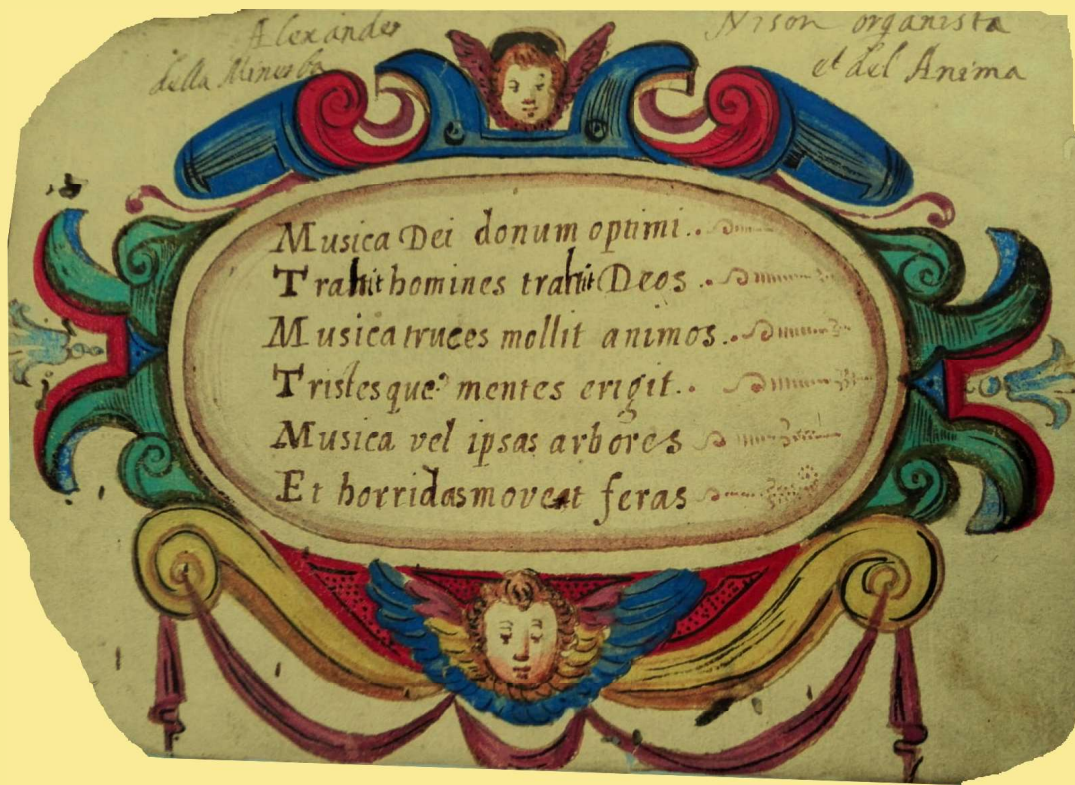 Alexander Nison organista
della Minerba et del Anima
Musica Dei donum optimi..
Trahit homines trahit Deos ..
Musica truces mollit animos..
Tristesque mentes erigit..
Musica vel ipsas arbores
Et horridas moveat feras